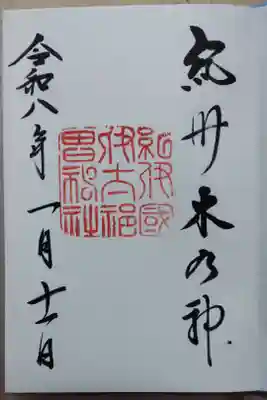 紀州木の神
紀伊國
伊太祁
曽神社
令和八年一月十一日